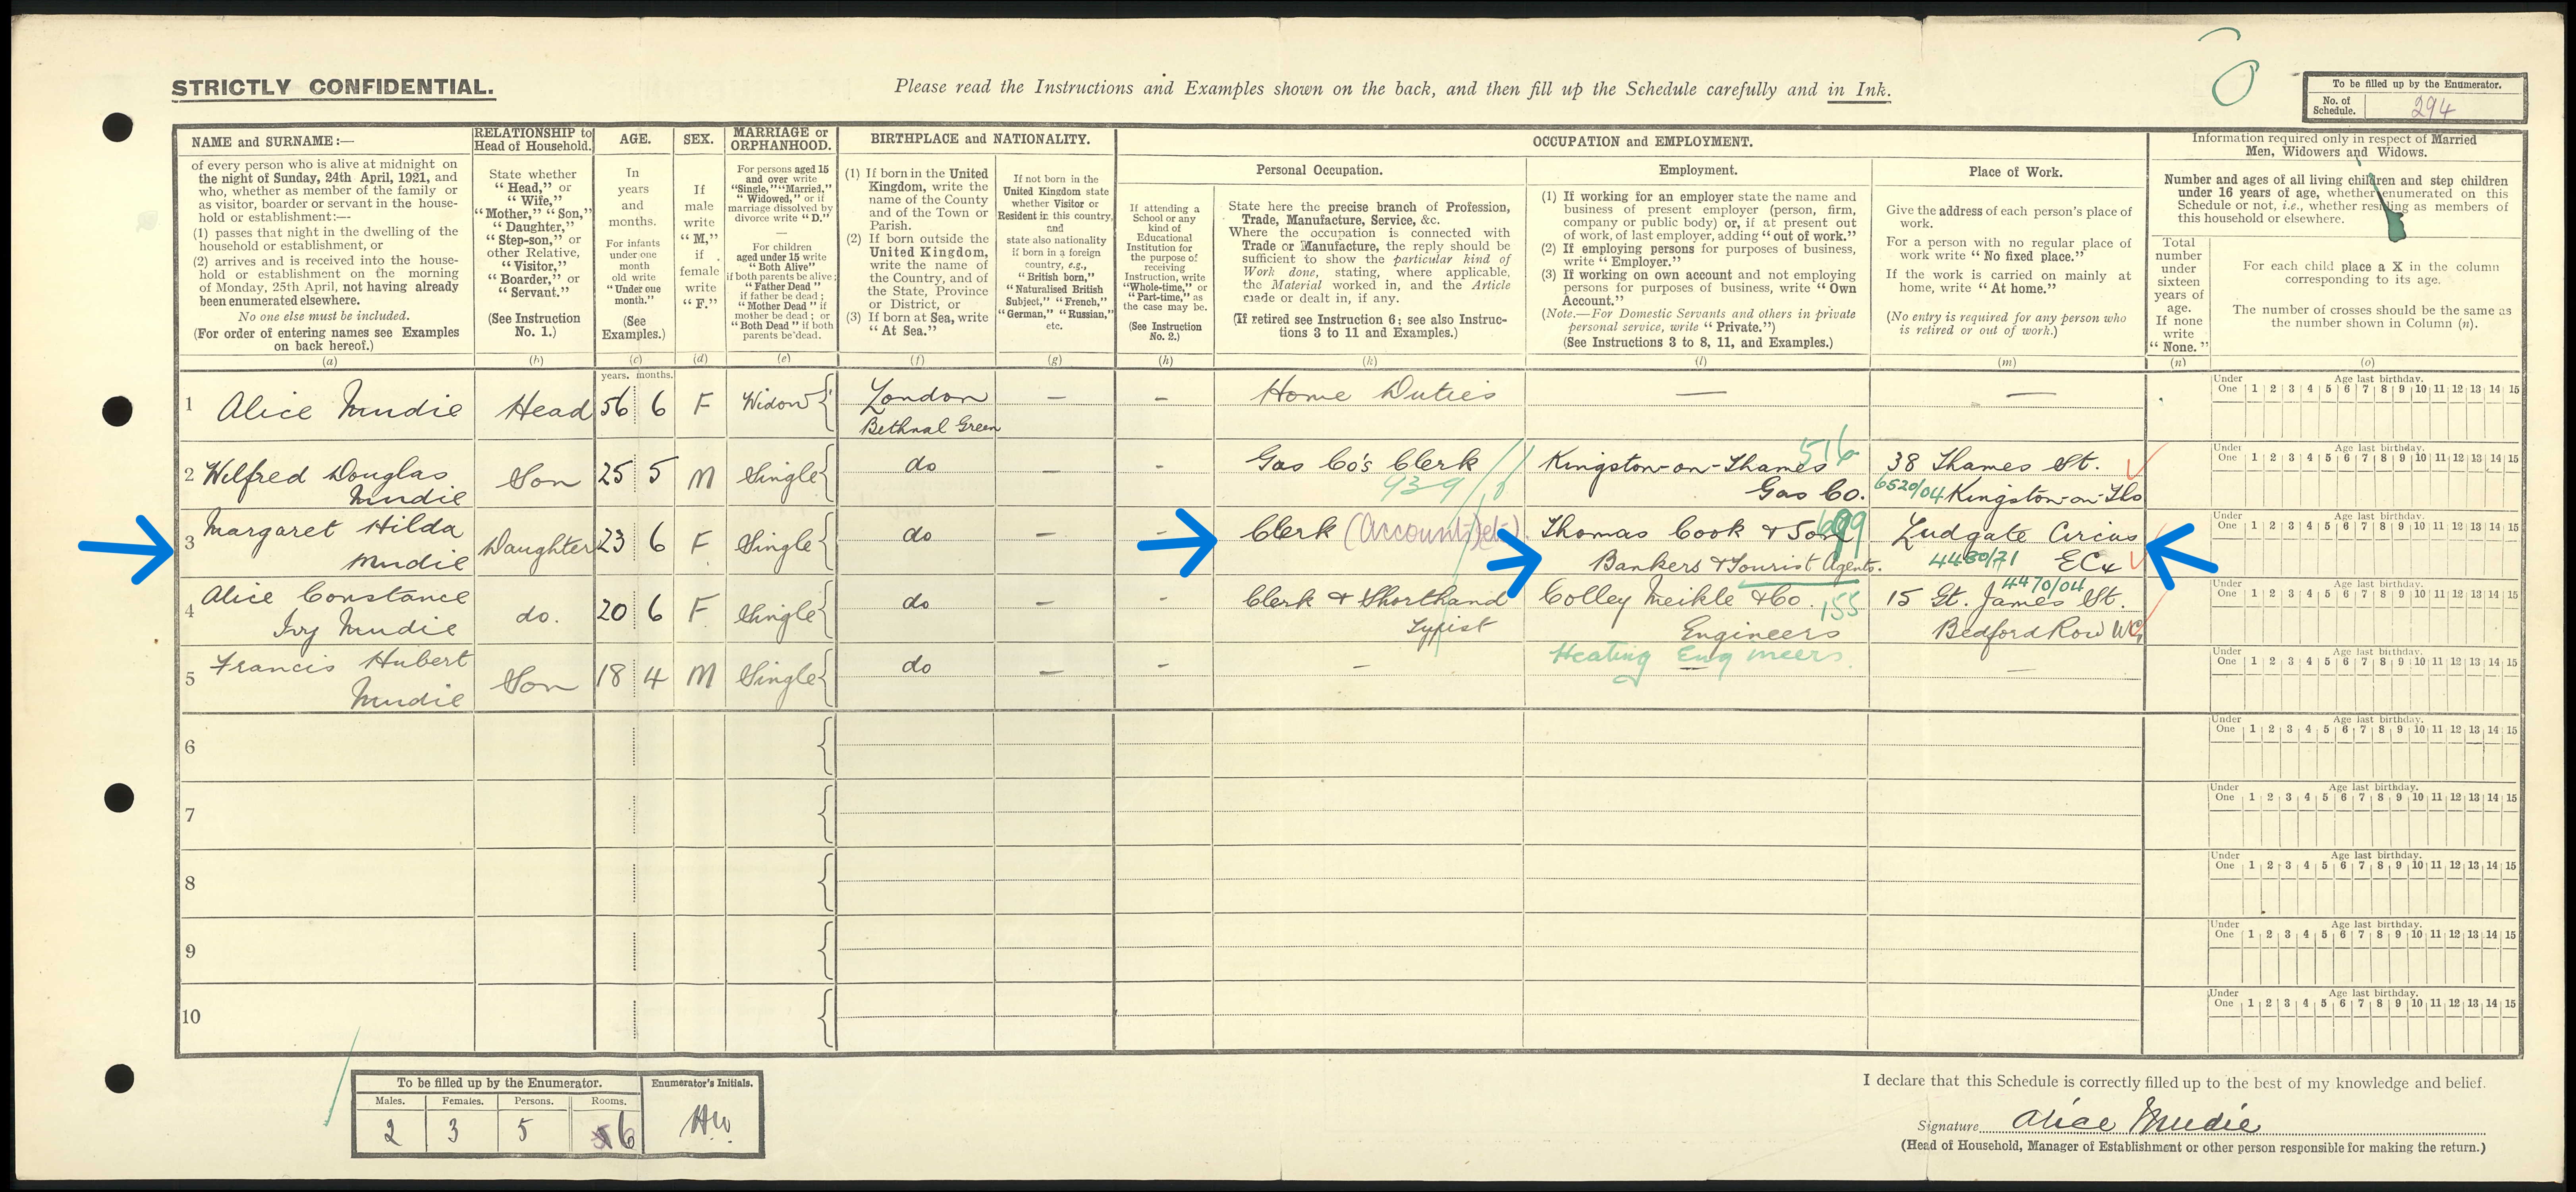 STRICTLY CONFIDENTIAL.
Please read the Instructions and Examples shown on the back, and then fill up the Schedule carefully and in Ink.
To be filled up by the Enumerator.
No. of Schedule. 294
NAME and SURNAME:—
of every person who is alive at midnight on
the night of Sunday, 24th April, 1921, and
who, whether as member of the family or
as visitor, boarder or servant in the house-
hold or establishment:—
(1) passes that night in the dwelling of the
household or establishment, or
(2) arrives and is received into the house-
hold or establishment on the morning
of Monday, 25th April, not having already
been enumerated elsewhere.
No one else must be included.
(For order of entering names see Examples
on back hereof.)
(a)
RELATIONSHIP to
Head of Household.
State whether
"Head," or
"Wife,"
"Mother," "Son,"
"Daughter,"
"Step-son," or
other Relative,
"Visitor,"
"Boarder," or
"Servant."
(See Instruction
No. 1.)
(b)
AGE.
In
years
and
months.
For infants
under one
month
old write
"Under one
month."
(See
Examples.)
(c)
SEX.
If
male
write
"M,"
if
female
write
"F."
(d)
MARRIAGE or
ORPHANHOOD.
For persons aged 15
and over write
"Single," "Married,"
"Widowed," or if
marriage dissolved by
divorce write "D."
—
For children
aged under 15 write
"Both Alive"
if both parents be alive;
"Father Dead"
if father be dead;
"Mother Dead" if
mother be dead; or
"Both Dead" if both
parents be dead.
(e)
BIRTHPLACE and NATIONALITY.
(1) If born in the United
Kingdom, write the
name of the County
and of the Town or
Parish.
(2) If born outside the
United Kingdom,
write the name of
the Country, and of
the State, Province
or District, or
(3) If born at Sea, write
"At Sea."
(f)
If not born in the
United Kingdom state
whether Visitor or
Resident in this country,
and
state also nationality
if born in a foreign
country, e.g.,
"British born,"
"Naturalised British
Subject," "French,"
"German," "Russian,"
etc.
(g)
OCCUPATION and EMPLOYMENT.
If attending a
School or any
kind of
Educational
Institution for
the purpose of
receiving
Instruction, write
"Whole-time," or
"Part-time," as
the case may be.
(See Instruction
No. 2.)
(h)
Personal Occupation.
State here the precise branch of Profession,
Trade, Manufacture, Service, &c.
Where the occupation is connected with
Trade or Manufacture, the reply should be
sufficient to show the particular kind of
Work done, stating, where applicable,
the Material worked in, and the Article
made or dealt in, if any.
(If retired see Instruction 6; see also Instruc-
tions 3 to 11 and Examples.)
(k)
Employment.
(1) If working for an employer state the name and
business of present employer (person, firm,
company or public body) or, if at present out
of work, of last employer, adding "out of work."
(2) If employing persons for purposes of business,
write "Employer."
(3) If working on own account and not employing
persons for purposes of business, write "Own
Account."
(Note.—For Domestic Servants and others in private
personal service, write "Private.")
(See Instructions 3 to 8, 11, and Examples.)
(l)
Place of Work.
Give the address of each person's place of
work.
For a person with no regular place of
work write "No fixed place."
If the work is carried on mainly at
home, write "At home."
(No entry is required for any person who
is retired or out of work.)
(m)
Information required only in respect of Married
Men, Widowers and Widows.
Number and ages of all living children and step children
under 16 years of age, whether enumerated on this
Schedule or not, i.e., whether residing as members of
this household or elsewhere.
Total
number
under
sixteen
years of
age.
If none
write
"None."
(n)
For each child place a X in the column
corresponding to its age.
The number of crosses should be the same as
the number shown in Column (n).
(o)
years. months.
1 Alice Mudie Head 56 6 F Widow London — - Home Duties — —
Bethnal Green
Under One Age last birthday. 1 2 3 4 5 6 7 8 9 10 11 12 13 14 15
2 Wilfred Douglas Son 25 5 M Single do — - Gas Co's Clerk Kingston-on-Thames 516 38 Thames St.
Mudie 939 Gas Co. 6520/04 Kingston-on-Ths
Under One Age last birthday. 1 2 3 4 5 6 7 8 9 10 11 12 13 14 15
3 Margaret Hilda Daughter 23 6 F Single do — - Clerk Thomas Cook & Son 699 Ludgate Circus
Mudie Bankers & Tourist Agents. 4480/71 EC4
Under One Age last birthday. 1 2 3 4 5 6 7 8 9 10 11 12 13 14 15
4 Alice Constance do. 20 6 F Single do — - Clerk & Shorthand Colley Meikle & Co. 155 4470/04 15 Gt. James St.
Ivy Mudie Typist Engineers Bedford Row WC
Heating Engineers.
Under One Age last birthday. 1 2 3 4 5 6 7 8 9 10 11 12 13 14 15
5 Francis Hubert Son 18 4 M Single do — - — —
Mudie
Under One Age last birthday. 1 2 3 4 5 6 7 8 9 10 11 12 13 14 15
6
Under One Age last birthday. 1 2 3 4 5 6 7 8 9 10 11 12 13 14 15
7
Under One Age last birthday. 1 2 3 4 5 6 7 8 9 10 11 12 13 14 15
8
Under One Age last birthday. 1 2 3 4 5 6 7 8 9 10 11 12 13 14 15
9
Under One Age last birthday. 1 2 3 4 5 6 7 8 9 10 11 12 13 14 15
10
Under One Age last birthday. 1 2 3 4 5 6 7 8 9 10 11 12 13 14 15
To be filled up by the Enumerator. Enumerator's Initials.
Males. Females. Persons. Rooms.
2 3 5 6 HW.
I declare that this Schedule is correctly filled up to the best of my knowledge and belief.
Signature Alice Mudie
(Head of Household, Manager of Establishment or other person responsible for making the return.)